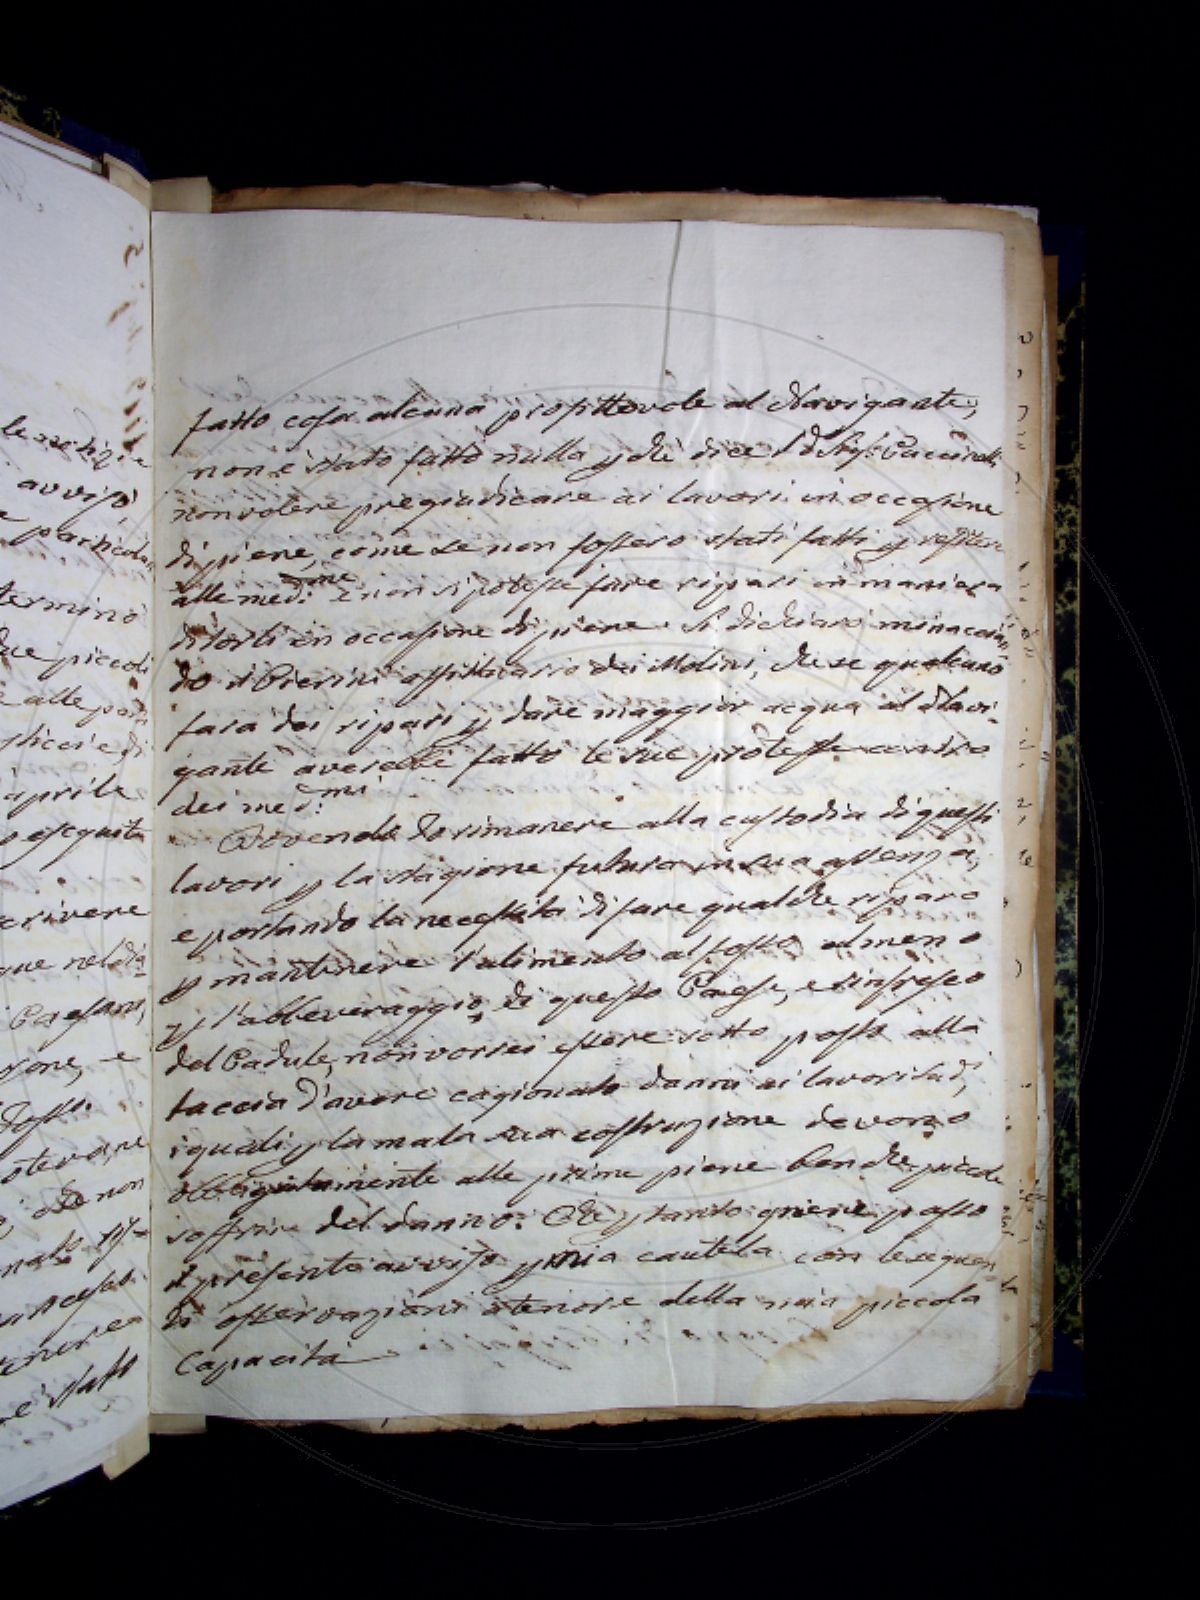 le notizie
avviso
particola
termino
due piccoli
e alle par
aprile
eseguita
scrivere
que nel dì
Paesani,
one, e
fosso.
potevane
che non
stato
fatto cosa alcuna profittevole al Navigante,
non è stato fatto nulla p chè dice Puccinelli
non volere pregiudicare ai lavori in occasione
di piene, come se non fossero stati fatti p resistere
alle med.me e non si potesse fare ripari in maniera
di torli in occasione di piene. Si dichiarò minaccian
do il Pierini affittuario dei Molini, che se qualcuno
fara dei ripari p dare maggior acqua al Navi-
gante averebbe fatto le sue proteste contro
dei med.mi
Dovendo Io rimanere alla custodia di questi
lavori p la stagione futura in sua assenza,
e portando la necessità di fare qualche riparo
p mantenere l'alimento al fosso almeno
p l'abbeveraggio di questo Paese, e rinfresco
del Padule, non vorrei essere sotto posto alla
taccia d'avere cagionato danni ai lavori sud.i,
i quali p la mala sua costruzione devono
obbligatamente alle prime piene benche piccole
soffrire del danno. Che p tanto gniene passo
il presente avviso p mia cautela con le seguen
ti osservazioni a tenore della mia piccola
Capacità